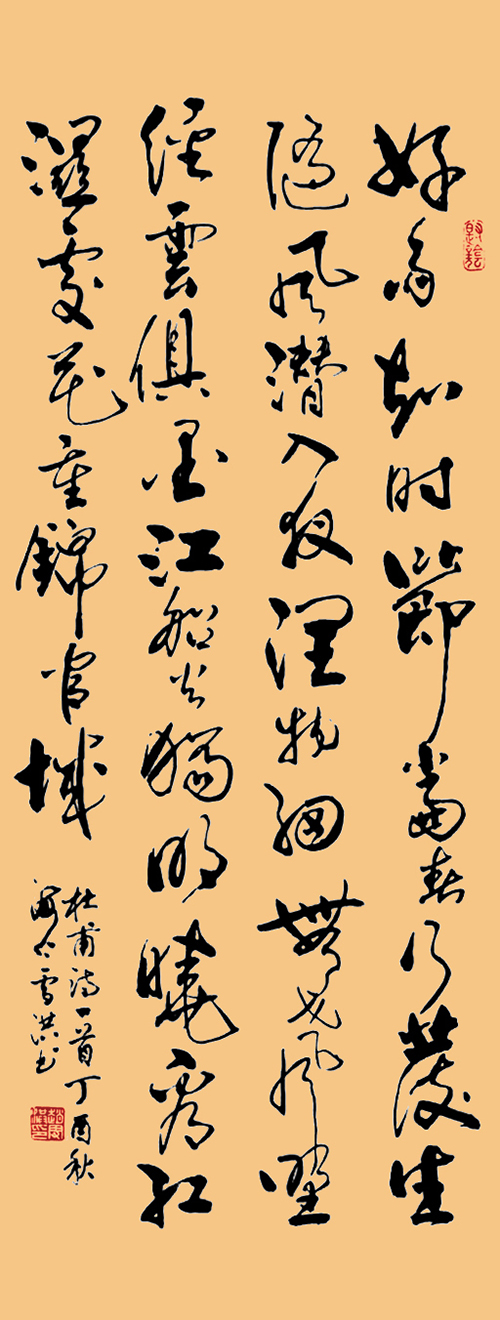 好雨知时節當春乃發生
隨風潜入夜潤物細無聲野
經雲俱黑江船火獨明曉看紅
濕處花重錦官城
杜甫詩一首丁酉秋
雪洪书